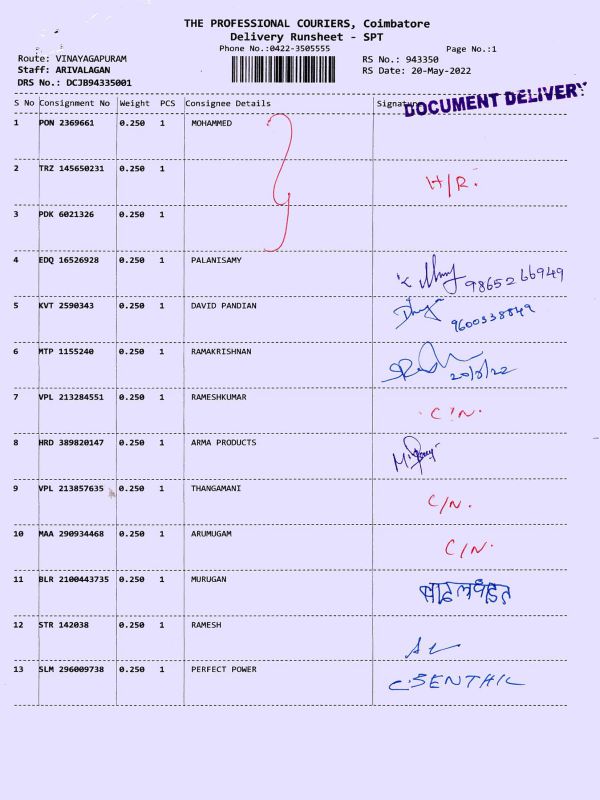 THE PROFESSIONAL COURIERS, Coimbatore
Delivery Runsheet - SPT
Phone No.:0422-3505555
Page No.:1
Route: VINAYAGAPURAM
RS No.: 943350
Staff: ARIVALAGAN
RS Date: 20-May-2022
DRS No.: DCJB94335001
DOCUMENT DELIVERY
S No Consignment No Weight PCS Consignee Details Signature
1 PON 2369661 0.250 1 MOHAMMED
2 TRZ 145650231 0.250 1 H/R.
3 PDK 6021326 0.250 1
4 EDQ 16526928 0.250 1 PALANISAMY 9865266949
5 KVT 2590343 0.250 1 DAVID PANDIAN 9600338849
6 MTP 1155240 0.250 1 RAMAKRISHNAN 20/5/22
7 VPL 213284551 0.250 1 RAMESHKUMAR C/N.
8 HRD 389820147 0.250 1 ARMA PRODUCTS
9 VPL 213857635 0.250 1 THANGAMANI C/N.
10 MAA 290934468 0.250 1 ARUMUGAM C/N.
11 BLR 2100443735 0.250 1 MURUGAN
12 STR 142038 0.250 1 RAMESH
13 SLM 296009738 0.250 1 PERFECT POWER C.SENTHIL